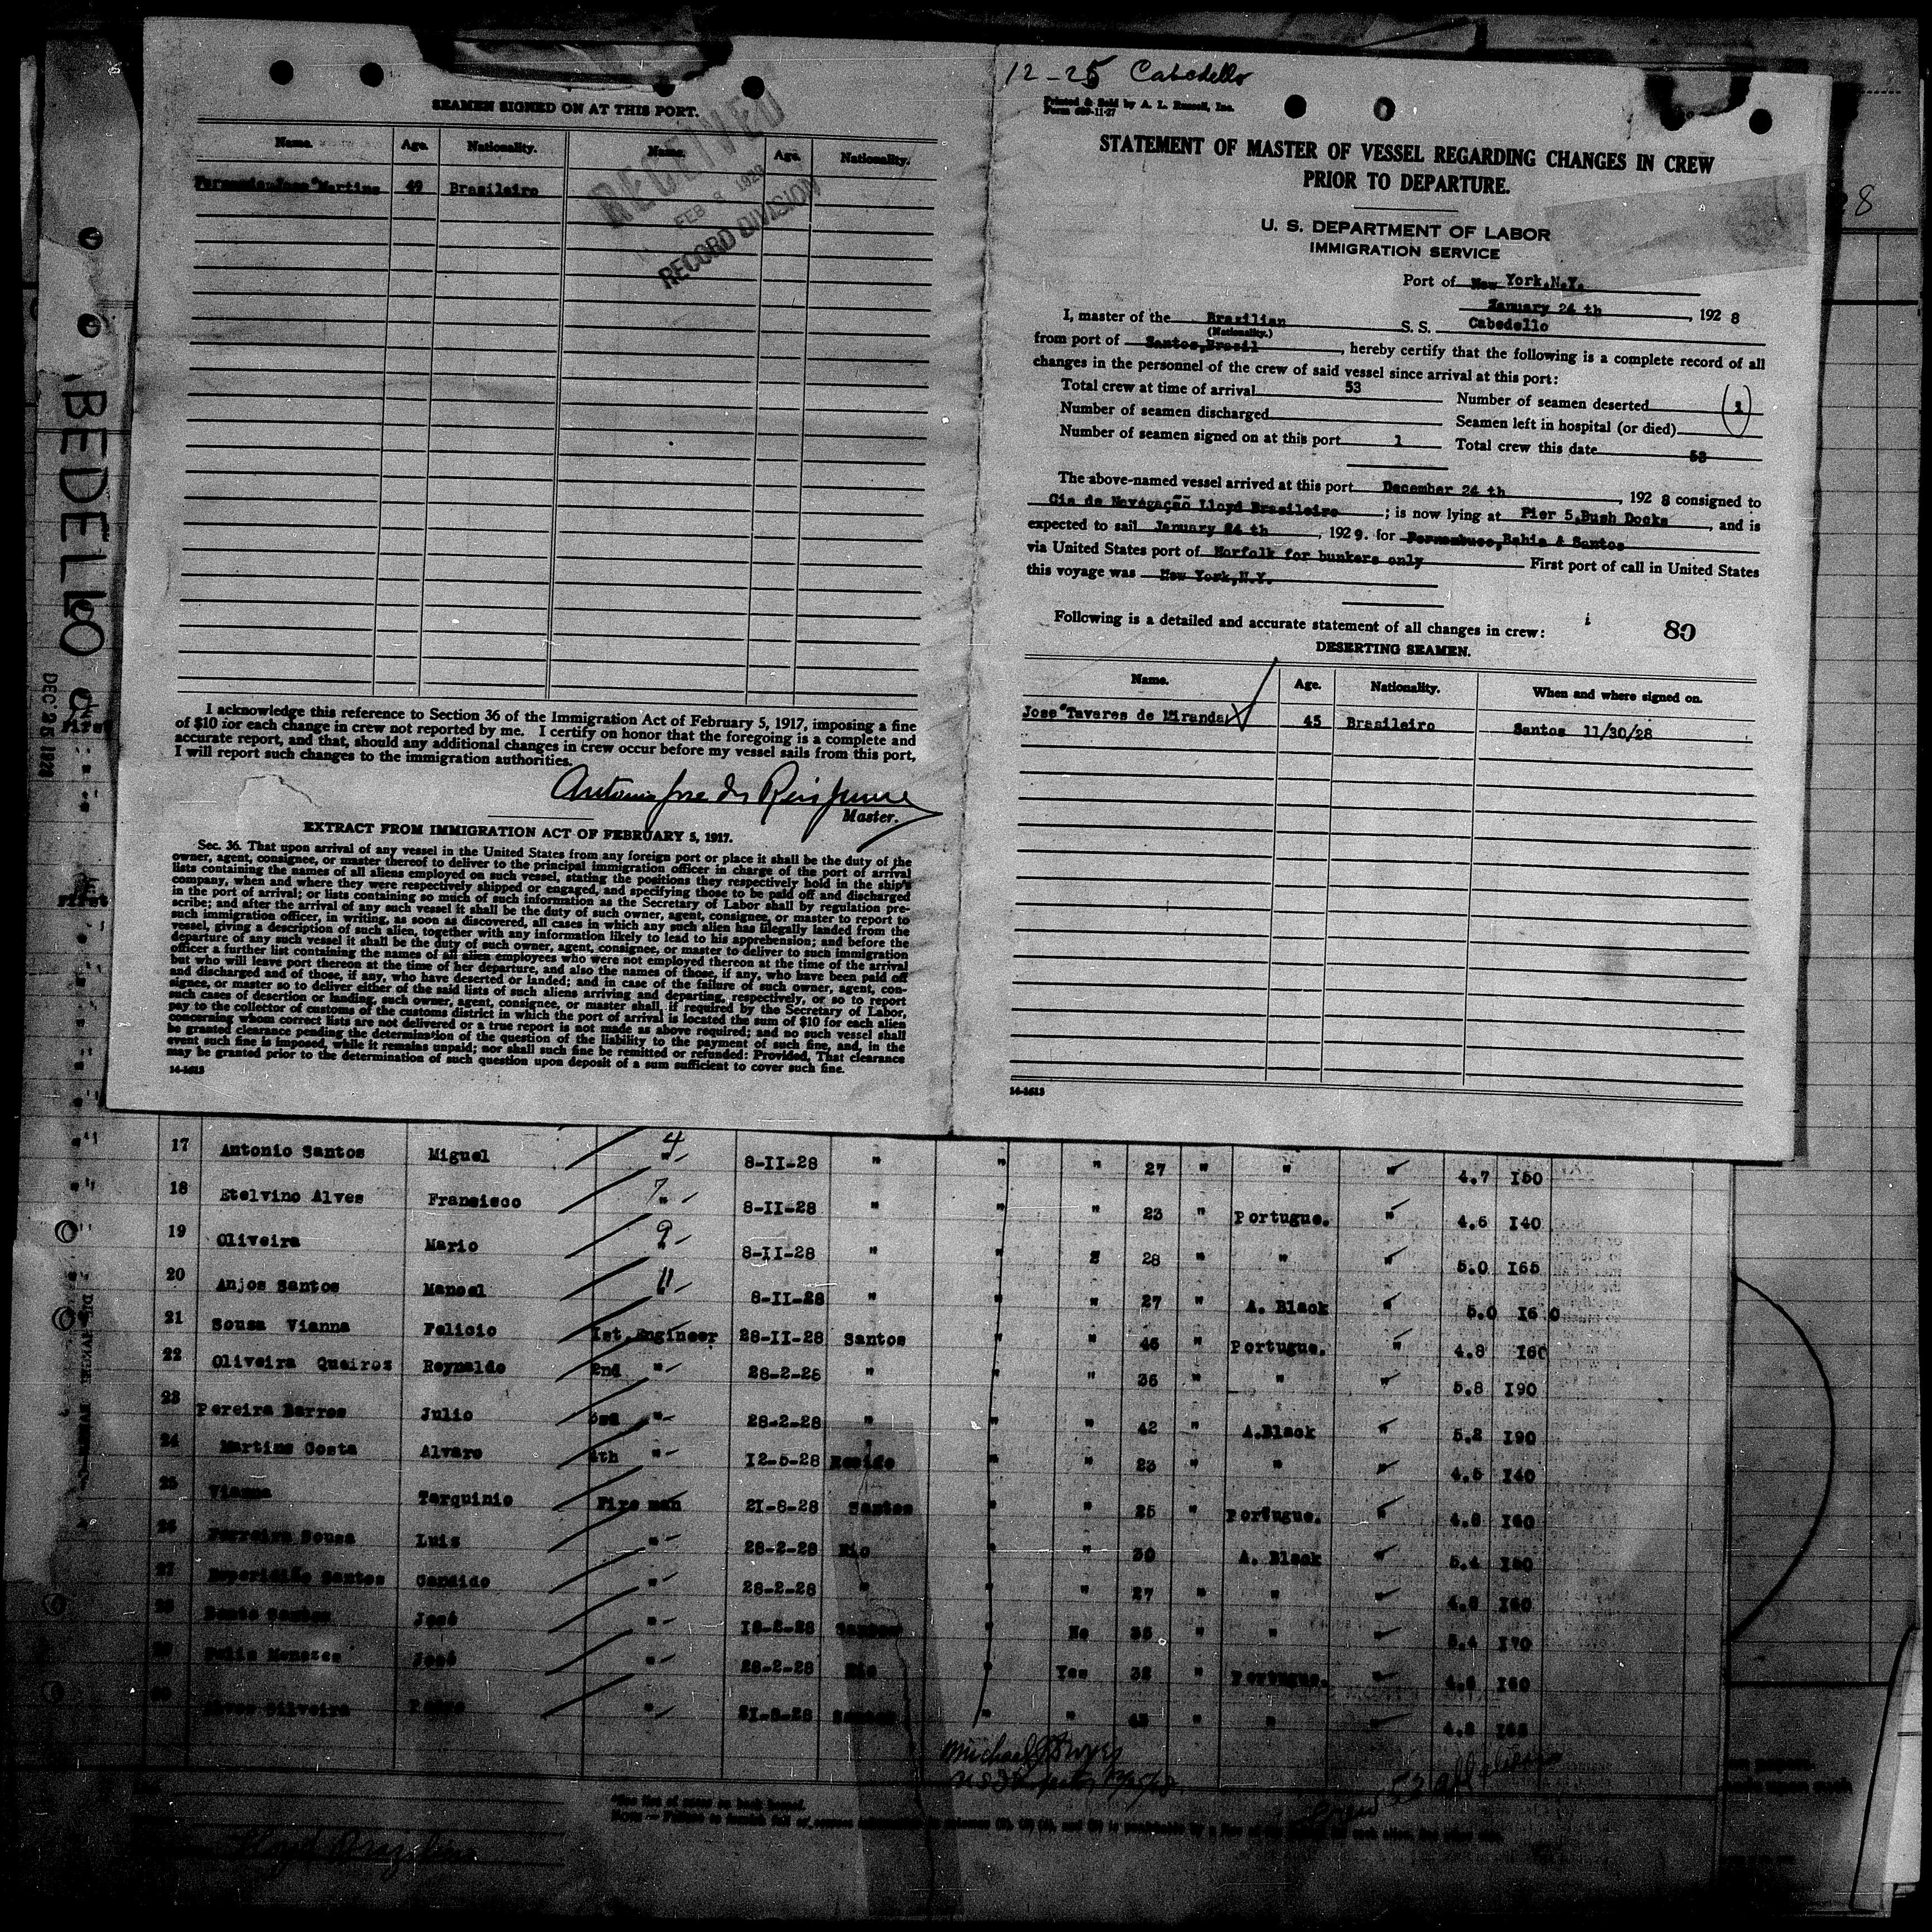 SEAMEN SIGNED ON AT THIS PORT.
Name. Age. Nationality. Name. Age. Nationality.
Martins 49 Brasileiro
RECEIVED
FEB 8 1929
RECORD DIVISION
I acknowledge this reference to Section 36 of the Immigration Act of February 5, 1917, imposing a fine
of $10 for each change in crew not reported by me. I certify on honor that the foregoing is a complete and
accurate report, and that, should any additional changes in crew occur before my vessel sails from this port,
I will report such changes to the immigration authorities.
Master.
EXTRACT FROM IMMIGRATION ACT OF FEBRUARY 5, 1917.
Sec. 36. That upon arrival of any vessel in the United States from any foreign port or place it shall be the duty of the
owner, agent, consignee, or master thereof to deliver to the principal immigration officer in charge of the port of arrival
lists containing the names of all aliens employed on such vessel, stating the positions they respectively hold in the ship's
company, when and where they were respectively shipped or engaged, and specifying those to be paid off and discharged
in the port of arrival; or lists containing so much of such information as the Secretary of Labor shall by regulation pre-
scribe; and after the arrival of any such vessel it shall be the duty of such owner, agent, consignee, or master to report to
such immigration officer, in writing, as soon as discovered, all cases in which any such alien has illegally landed from the
vessel, giving a description of such alien, together with any information likely to lead to his apprehension; and before the
departure of any such vessel it shall be the duty of such owner, agent, consignee, or master to deliver to such immigration
officer a further list containing the names of all alien employees who were not employed thereon at the time of the arrival
but who will leave port thereon at the time of her departure, and also the names of those, if any, who have been paid off
and discharged and of those, if any, who have deserted or landed; and in case of the failure of such owner, agent, con-
signee, or master so to deliver either of the said lists of such aliens arriving and departing, respectively, or so to report
such cases of desertion or landing, such owner, agent, consignee, or master shall, if required by the Secretary of Labor,
pay to the collector of customs of the customs district in which the port of arrival is located the sum of $10 for each alien
concerning whom correct lists are not delivered or a true report is not made as above required; and no such vessel shall
be granted clearance pending the determination of the question of the liability to the payment of such fine, and, in the
event such fine is imposed, while it remains unpaid; nor shall such fine be remitted or refunded: Provided, That clearance
may be granted prior to the determination of such question upon deposit of a sum sufficient to cover such fine.
14-1613
12-25 Cabedello
Printed & Sold by A. L. Russell, Inc.
Form 689-11-27
STATEMENT OF MASTER OF VESSEL REGARDING CHANGES IN CREW
PRIOR TO DEPARTURE.
U. S. DEPARTMENT OF LABOR
IMMIGRATION SERVICE
Port of New York,N.Y.
January 24 th, 192 8
I, master of the Brazilian S. S. Cabedello
(Nationality.)
from port of Santos,Brazil, hereby certify that the following is a complete record of all
changes in the personnel of the crew of said vessel since arrival at this port:
Total crew at time of arrival 53 Number of seamen deserted (1)
Number of seamen discharged Seamen left in hospital (or died)
Number of seamen signed on at this port 1 Total crew this date 53
The above-named vessel arrived at this port December 24 th, 192 8 consigned to
Cia de Navegação Lloyd Brasileiro; is now lying at Pier 5,Bush Docks, and is
expected to sail January 24 th, 1929. for Pernambuco,Bahia & Santos
via United States port of Norfolk for bunkers only First port of call in United States
this voyage was New York,N.Y.
Following is a detailed and accurate statement of all changes in crew:
80
DESERTING SEAMEN.
Name. Age. Nationality. When and where signed on.
Jose Tavares de Miranda 45 Brasileiro Santos 11/30/28
14-1613
BEDELLO
DEC 25 1928
First
First
17 Antonio Santos Miguel 4 " 8-II-28 " " " 27 " " " 4.7 I50
18 Etelvino Alves Francisco 7 " 8-II-28 " " " 23 " Portugue. " 4.6 I40
19 Oliveira Mario 9 " 8-II-28 " " " 28 " " " 5.0 I65
20 Anjos Santos Manoel 11 8-II-28 " " " 27 " A. Black " 5.0 I60
21 Sousa Vianna Felicio Ist.Engineer 28-II-28 Santos " " 46 " Portugue. " 4.8 I60
22 Oliveira Queiros Reynaldo 2nd " 28-2-28 " " " 36 " " " 5.8 I90
23 Pereira Barros Julio 3rd " 28-2-28 " " " 42 " A.Black " 5.2 I90
24 Martins Costa Alvaro 4th " I2-5-28 " " 23 " " " 4.5 I40
25 Vianna Tarquinio Fire man 2I-8-28 Santos " " 25 " Portugue. " 4.8 I60
26 Ferreira Sousa Luis " 28-2-28 Rio " " 30 " A. Black " 5.4 I60
27 Santos Candido " 28-2-28 " " " 27 " " " 4.8 I60
28 José " I8-2-28 Santos " No 35 " " " 5.4 I70
29 Felix Menezes José " 28-2-28 Rio " Yes 32 " Portugue. " 4.6 I60
30 Silveira " 2I-8-28 Santos " " 43 " " " 4.8
*See list of races on back hereof.
Crew 53 all aliens
Lloyd Brazileiro